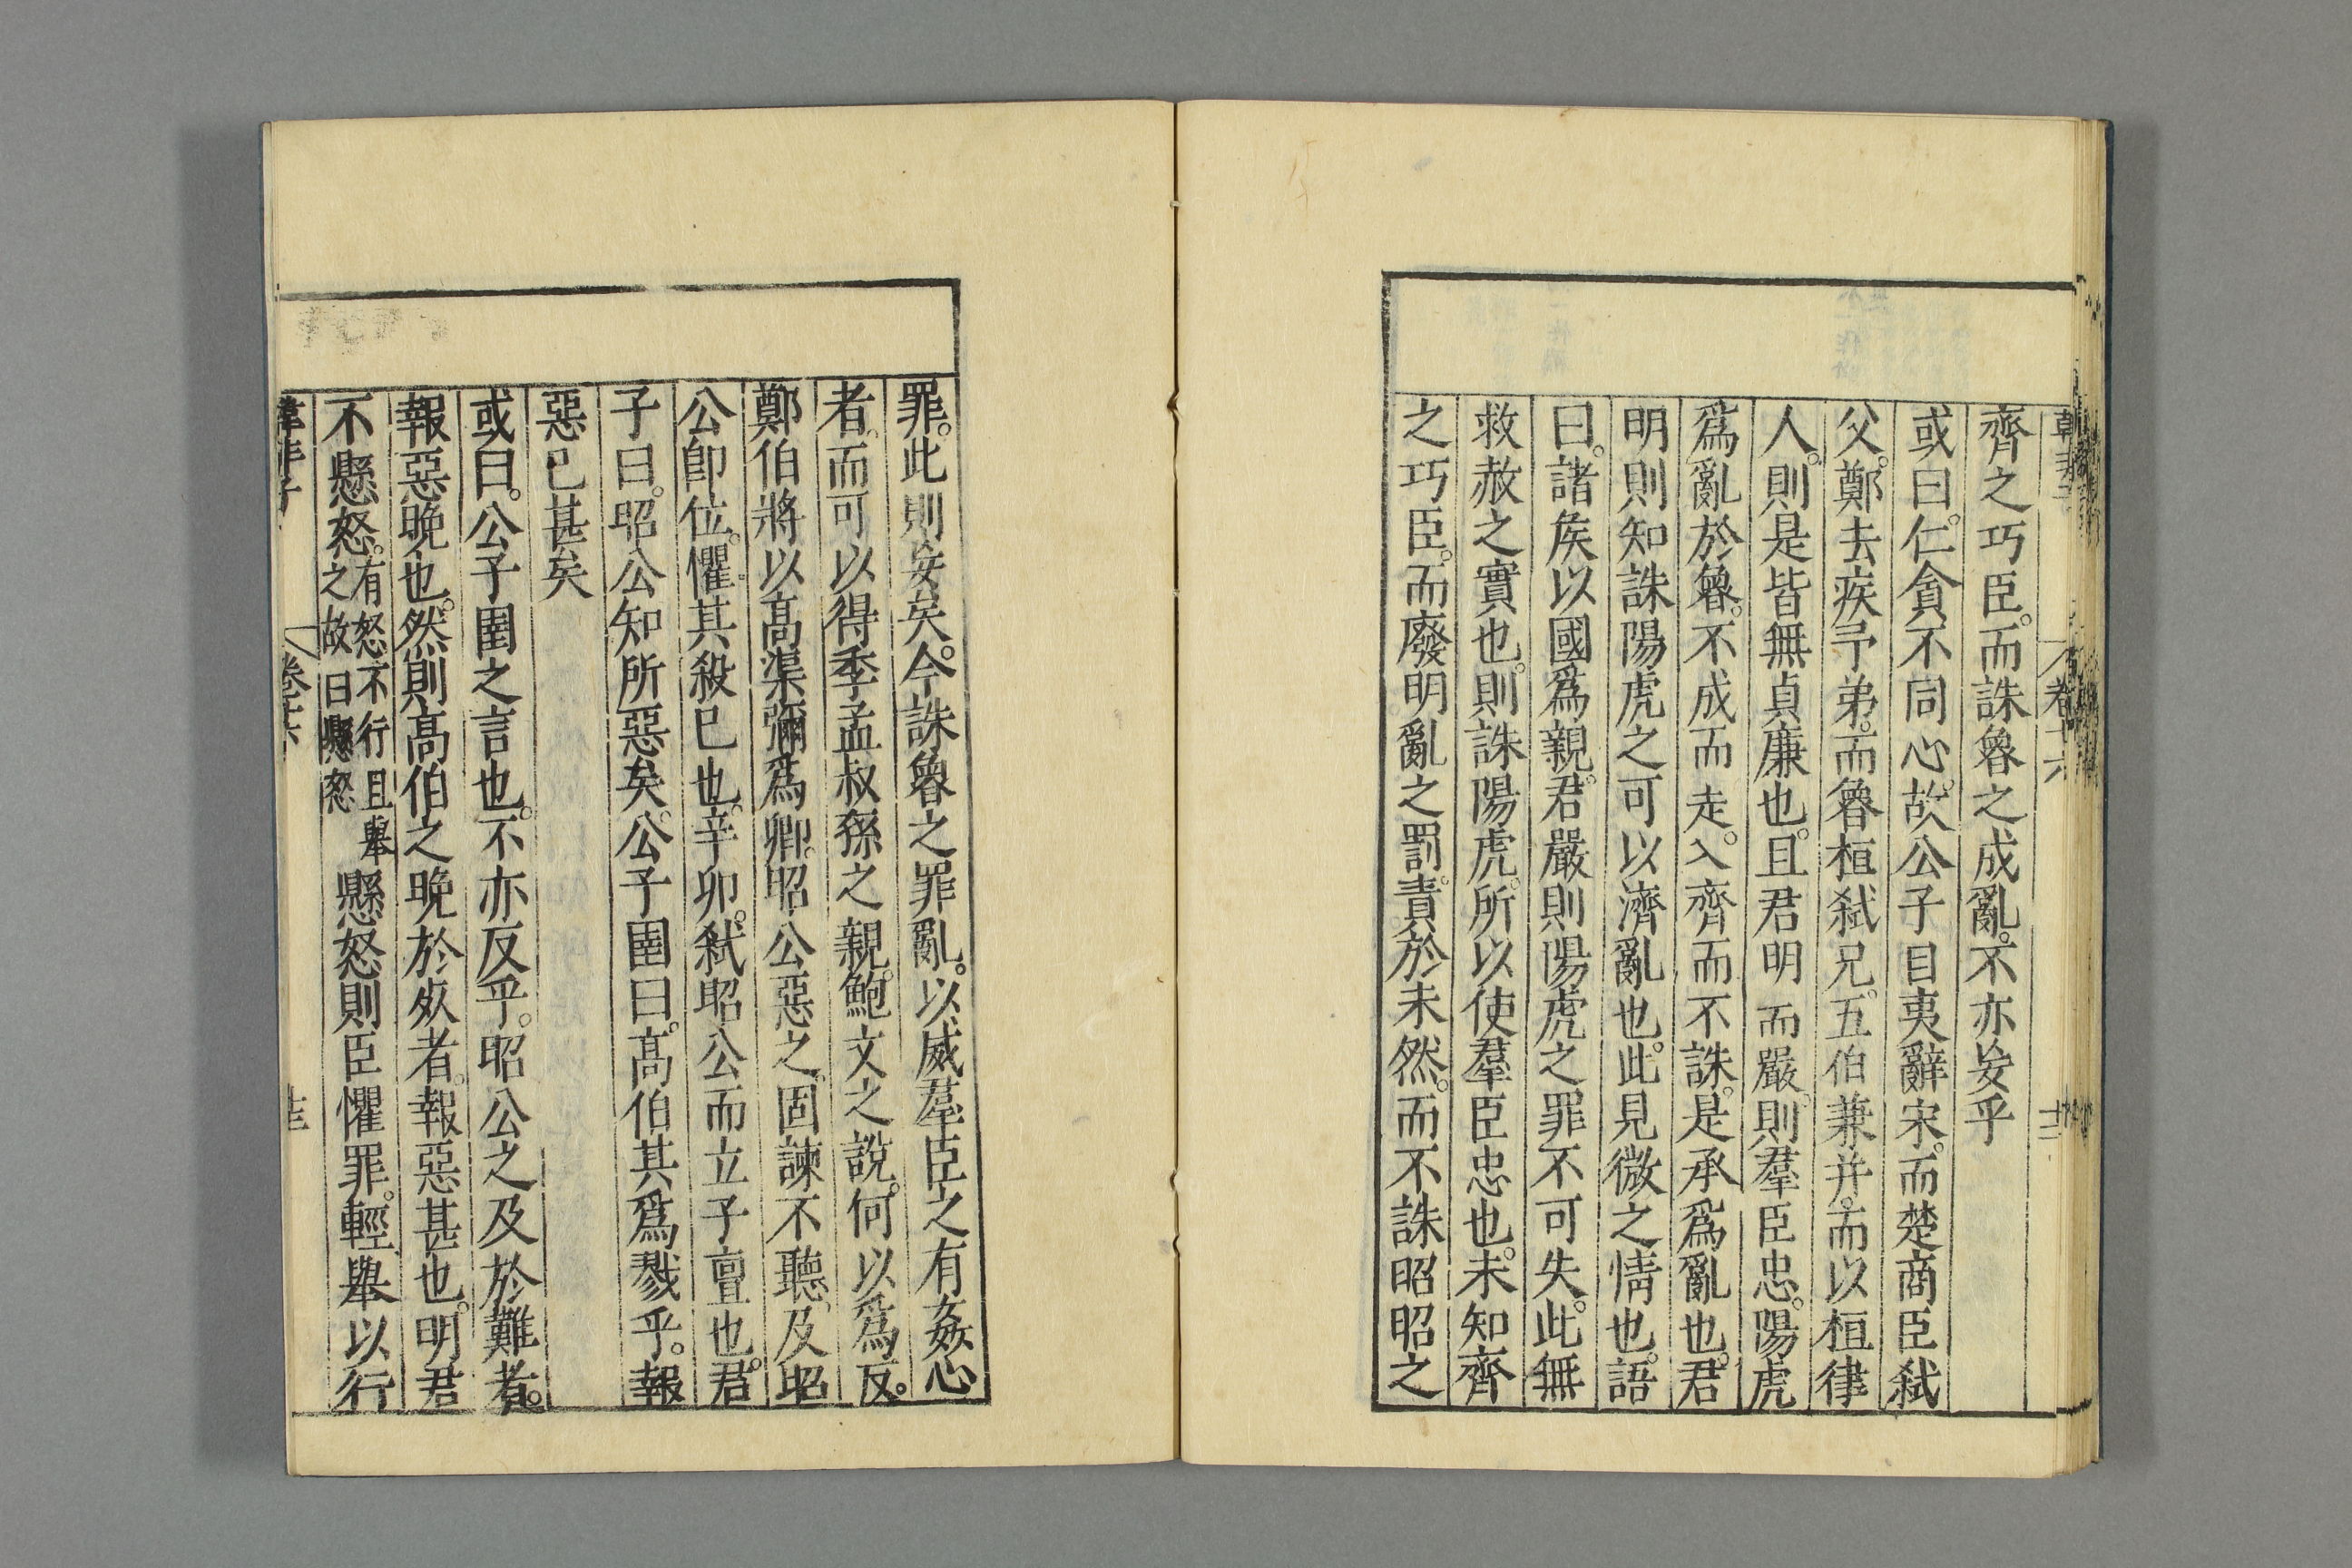 韓非子 卷十六 十二
齊之巧臣。而誅魯之成亂。不亦妄乎
或曰。仁貪不同心。故公子目夷辭宋。而楚商臣弑
父。鄭去疾予弟。而魯桓弑兄。五伯兼并。而以桓律
人。則是皆無貞廉也。且君明而嚴。則羣臣忠。陽虎
爲亂於魯。不成而走。入齊而不誅。是承爲亂也。君
明則知誅陽虎之可以濟亂也。此見微之情也。語
曰。諸矦以國爲親。君嚴則陽虎之罪不可失。此無
救赦之實也。則誅陽虎。所以使羣臣忠也。未知齊
之巧臣。而廢明亂之罰。責於未然。而不誅昭昭之
罪。此則妄矣。今誅魯之罪亂。以威羣臣之有姦心
者。而可以得季孟叔孫之親。鮑文之說。何以爲反。
鄭伯將以高渠彌爲卿。昭公惡之。固諫不聽。及昭
公卽位。懼其殺已也。辛卯。弑昭公而立子亶也。君
子曰。昭公知所惡矣。公子圉曰。高伯其爲戮乎。報
惡已甚矣
或曰。公子圉之言也。不亦反乎。昭公之及於難者。
報惡晚也。然則高伯之晚於㱙者。報惡甚也。明君
不懸怒。有怒不行且舉之故曰懸怒 懸怒則臣懼罪。輕舉以行
韓非子 卷十六 十三